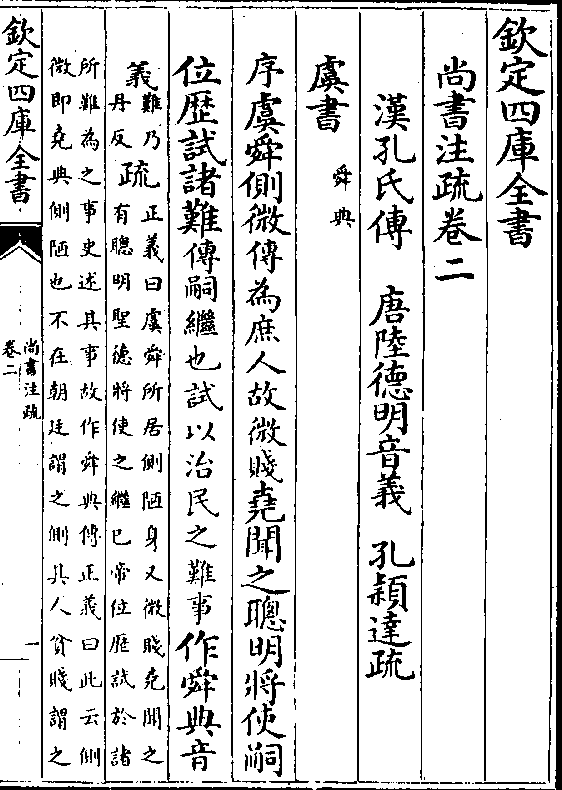 欽定四庫全書
尚書注疏卷二
漢孔氏傳　唐陸德明音義　孔穎達疏
虞書
舜典
序虞舜側微傳為庶人故微賤堯聞之聰明將使嗣
位歴試諸難傳嗣繼也試以治民之難事作舜典音
義難乃
丹反疏正義曰虞舜所居側陋身又微賤堯聞之
有聰明聖德將使之繼已帝位歴試於諸
所難為之事史述其事故作舜典傳正義曰此云側
微即堯典側陋也不在朝廷謂之側其人貧賤謂之
欽定四庫全書
尚書注疏
卷二
一